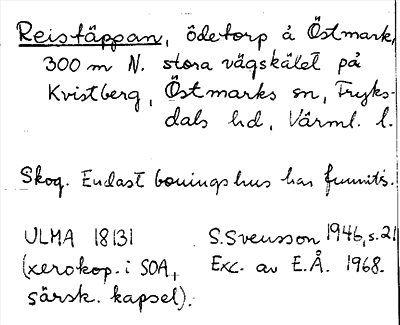 Reistäppan, ödetorp å Östmark,
300 m N. stora vägskälet på
Kvistberg, Östmarks sn, Fryks-
dals hd, Värml. l.
Skog. Endast boningshus har funnits.
ULMA 18131 S. Svensson 1946, s. 21
(xerokop. i SOA, Exc. av E.Å. 1968.
särsk. kapsel).